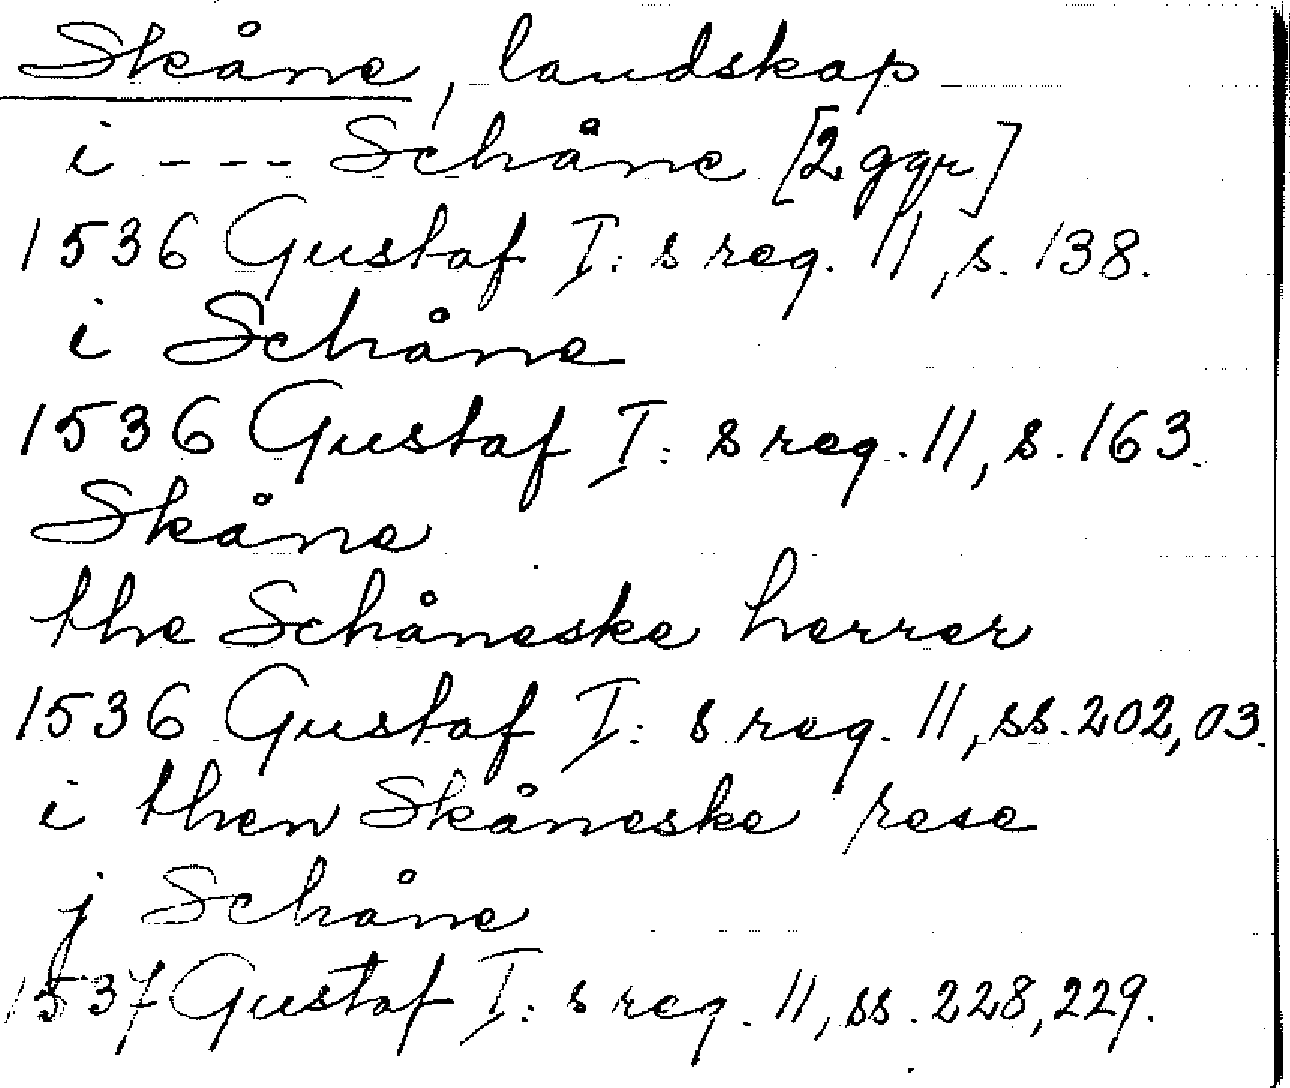 Skåne, landskap
i --- Schåne [2 ggr]
1536 Gustaf I:s reg. 11, s. 138.
i Schåne
1536 Gustaf I:s reg. 11, s. 163.
Skåne
the Schåneske herrer
1536 Gustaf I:s reg. 11, ss. 202, 03.
i then Skåneske rese
j Schåne
1537 Gustaf I:s reg. 11, ss. 228, 229.